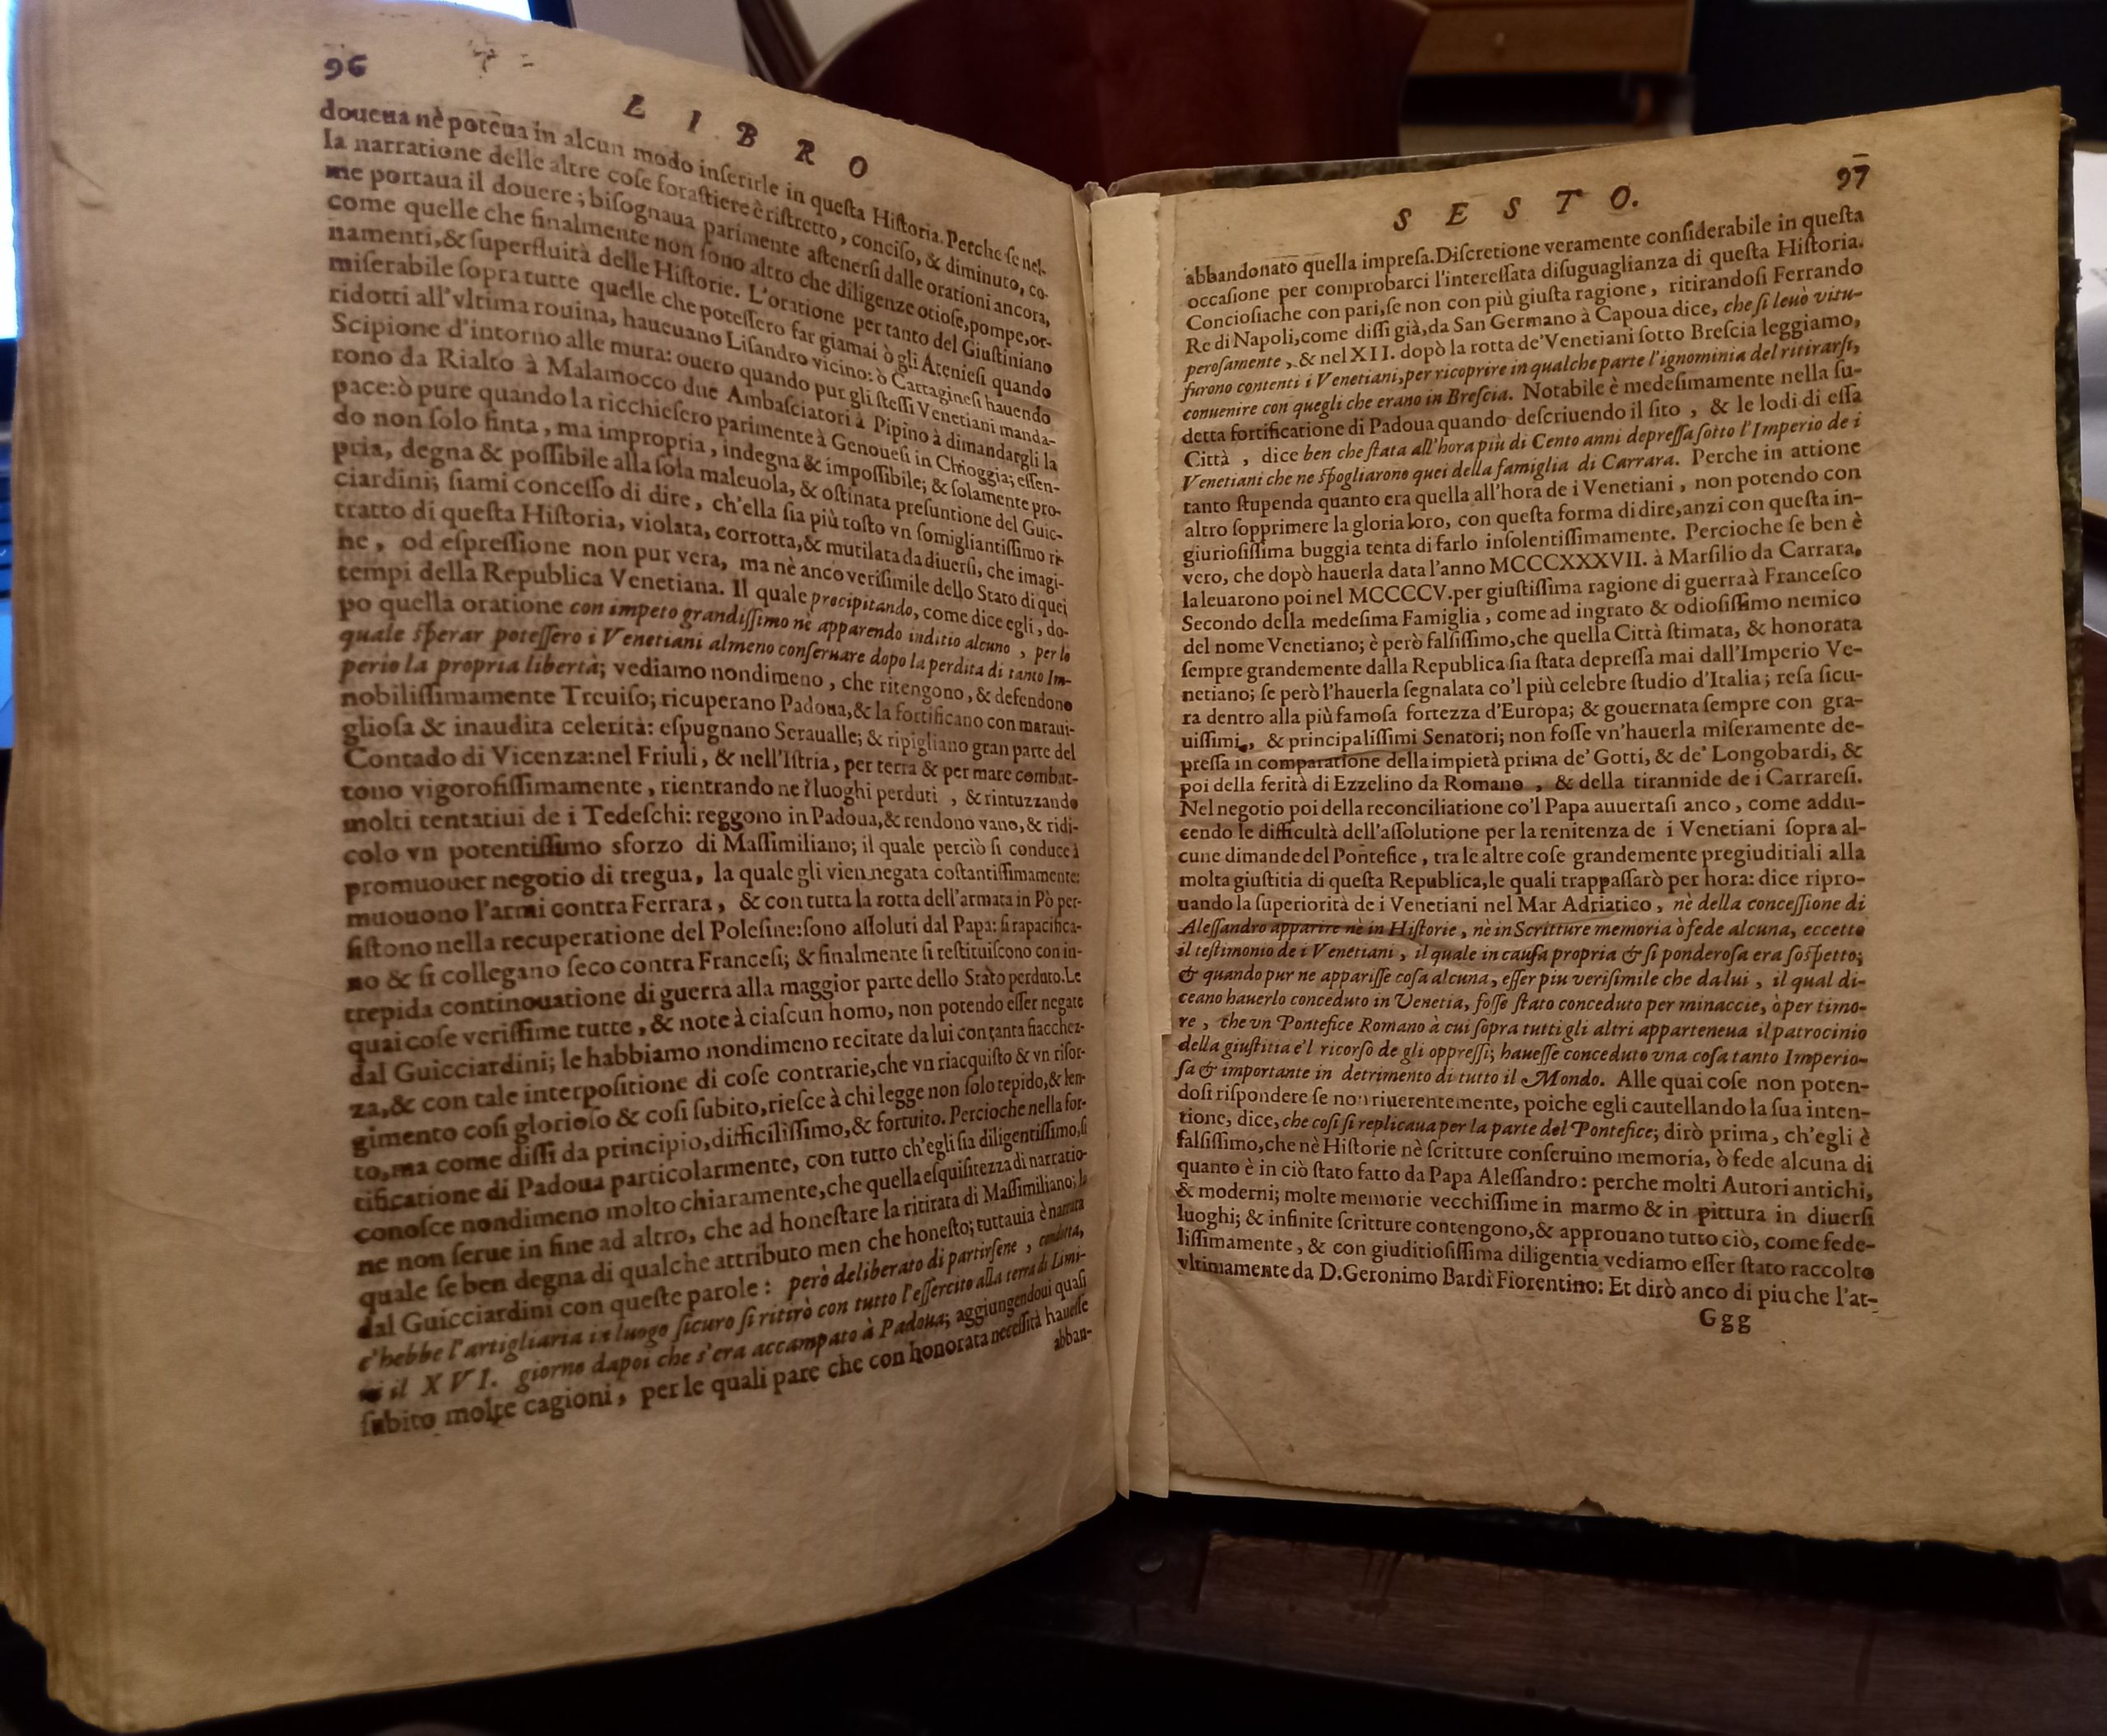 96
LIBRO
doueua nè poteua in alcun modo inſerirle in queſta Hiſtoria. Perche ſe nel-
la narratione delle altre coſe foraſtiere è riſtretto, conciſo, & diminuto, co-
me portaua il douere; biſognaua parimente aſtenerſi dalle orationi ancora,
come quelle che finalmente non ſono altro che diligenze otioſe, pompe, or-
namenti, & ſuperfluità delle Hiſtorie. L'oratione per tanto del Giuſtiniano
miſerabile ſopra tutte quelle che poteſſero far giamai ò gli Atenieſi quando
ridotti all'vltima rouina, haueuano Liſandro vicino: ò Cartagineſi hauendo
Scipione d'intorno alle mura: ouero quando pur gli ſteſſi Venetiani manda-
rono da Rialto à Malamocco due Ambaſciatori à Pipino à dimandargli la
pace: ò pure quando la ricchieſero parimente à Genoueſi in Chioggia; eſſen-
do non ſolo finta, ma impropria, indegna & impoſſibile; & ſolamente pro-
pria, degna & poſſibile alla ſola maleuola, & oſtinata preſuntione del Guic-
ciardini; ſiami conceſſo di dire, ch'ella ſia più toſto vn ſomigliantiſſimo ri-
tratto di queſta Hiſtoria, violata, corrotta, & mutilata da diuerſi, che imagi-
ne, od eſpreſſione non pur vera, ma nè anco veriſimile dello Stato di quei
tempi della Republica Venetiana. Il quale precipitando, come dice egli, do-
po quella oratione con impeto grandiſſimo nè apparendo inditio alcuno, per lo
quale ſperar poteſſero i Venetiani almeno conſeruare dopo la perdita di tanto Im-
perio la propria libertà; vediamo nondimeno, che ritengono, & defendono
nobiliſſimamente Treuiſo; ricuperano Padoua, & la fortificano con maraui-
glioſa & inaudita celerità: eſpugnano Seraualle; & ripigliano gran parte del
Contado di Vicenza: nel Friuli, & nell'Iſtria, per terra & per mare combat-
tono vigoroſiſſimamente, rientrando ne i luoghi perduti, & rintuzzando
molti tentatiui de i Tedeſchi: reggono in Padoua, & rendono vano, & ridi-
colo vn potentiſſimo sforzo di Maſſimiliano; il quale perciò ſi conduce à
promuouer negotio di tregua, la quale gli vien negata coſtantiſſimamente:
muouono l'armi contra Ferrara, & con tutta la rotta dell'armata in Pò per-
ſiſtono nella recuperatione del Poleſine: ſono aſſoluti dal Papa: ſi rapacifica-
no & ſi collegano ſeco contra Franceſi; & finalmente ſi reſtituiſcono con in-
trepida continouatione di guerra alla maggior parte dello Stato perduto. Le
quai coſe veriſſime tutte, & note à ciaſcun homo, non potendo eſſer negate
dal Guicciardini; le habbiamo nondimeno recitate da lui con tanta fiacchez-
za, & con tale interpoſitione di coſe contrarie, che vn riacquiſto & vn riſor-
gimento coſi glorioſo & coſi ſubito, rieſce à chi legge non ſolo tepido, & len-
to, ma come diſſi da principio, difficiliſſimo, & fortuito. Percioche nella for-
tificatione di Padoua particolarmente, con tutto ch'egli ſia diligentiſſimo, ſi
conoſce nondimeno molto chiaramente, che quella eſquiſitezza di narratio-
ne non ſerue in fine ad altro, che ad honeſtare la ritirata di Maſſimiliano; la
quale ſe ben degna di qualche attributo men che honeſto; tuttauia è narrata
dal Guicciardini con queſte parole: però deliberato di partirſene, condotta,
c'hebbe l'artigliaria in luogo ſicuro ſi ritirò con tutto l'eſſercito alla terra di Limi-
ni il XVI. giorno dapoi che s'era accampato à Padoua; aggiungendoui quaſi
ſubito molte cagioni, per le quali pare che con honorata neceſſità haueſſe
abban-
SESTO.
97
abbandonato quella impreſa. Diſcretione veramente conſiderabile in queſta
occaſione per comprobarci l'intereſſata diſuguaglianza di queſta Hiſtoria.
Concioſiache con pari, ſe non con più giuſta ragione, ritirandoſi Ferrando
Re di Napoli, come diſſi già, da San Germano à Capoua dice, che ſi leuò vitu-
peroſamente, & nel XII. dopò la rotta de'Venetiani ſotto Breſcia leggiamo,
furono contenti i Venetiani, per ricoprire in qualche parte l'ignominia del ritirarſi,
conuenire con quegli che erano in Breſcia. Notabile è medeſimamente nella ſu-
detta fortificatione di Padoua quando deſcriuendo il ſito, & le lodi di eſſa
Città, dice ben che ſtata all'hora più di Cento anni depreſſa ſotto l'Imperio de i
Venetiani che ne ſpogliarono quei della famiglia di Carrara. Perche in attione
tanto ſtupenda quanto era quella all'hora de i Venetiani, non potendo con
altro ſopprimere la gloria loro, con queſta forma di dire, anzi con queſta in-
giurioſiſſima buggia tenta di farlo inſolentiſſimamente. Percioche ſe ben è
vero, che dopò hauerla data l'anno MCCCXXXVII. à Marſilio da Carrara,
la leuarono poi nel MCCCCV. per giuſtiſſima ragione di guerra à Franceſco
Secondo della medeſima Famiglia, come ad ingrato & odioſiſſimo nemico
del nome Venetiano; è però falſiſſimo, che quella Città ſtimata, & honorata
ſempre grandemente dalla Republica ſia ſtata depreſſa mai dall'Imperio Ve-
netiano; ſe però l'hauerla ſegnalata co'l più celebre ſtudio d'Italia; reſa ſicu-
ra dentro alla più famoſa fortezza d'Europa; & gouernata ſempre con gra-
uiſſimi, & principaliſſimi Senatori; non foſſe vn'hauerla miſeramente de-
preſſa in comparatione della impietà prima de' Gotti, & de' Longobardi, &
poi della ferità di Ezzelino da Romano, & della tirannide de i Carrareſi.
Nel negotio poi della reconciliatione co'l Papa auuertaſi anco, come addu-
cendo le difficultà dell'aſſolutione per la renitenza de i Venetiani ſopra al-
cune dimande del Pontefice, tra le altre coſe grandemente pregiuditiali alla
molta giuſtitia di queſta Republica, le quali trappaſſarò per hora: dice ripro-
uando la ſuperiorità de i Venetiani nel Mar Adriatico, nè della conceſſione di
Aleſſandro apparire nè in Hiſtorie, nè in Scritture memoria ò fede alcuna, eccetto
il teſtimonio de i Venetiani, il quale in cauſa propria & ſi ponderoſa era ſoſpetto;
& quando pur ne appariſſe coſa alcuna, eſſer piu veriſimile che da lui, il qual di-
ceano hauerlo conceduto in Venetia, foſſe ſtato conceduto per minaccie, ò per timo-
re, che vn Pontefice Romano à cui ſopra tutti gli altri apparteneua il patrocinio
della giuſtitia e'l ricorſo de gli oppreſſi; haueſſe conceduto vna coſa tanto Imperio-
ſa & importante in detrimento di tutto il Mondo. Alle quai coſe non poten-
doſi riſpondere ſe non riuerentemente, poiche egli cautellando la ſua inten-
tione, dice, che coſi ſi replicaua per la parte del Pontefice; dirò prima, ch'egli è
falſiſſimo, che nè Hiſtorie nè ſcritture conſeruino memoria, ò fede alcuna di
quanto è in ciò ſtato fatto da Papa Aleſſandro: perche molti Autori antichi,
& moderni; molte memorie vecchiſſime in marmo & in pittura in diuerſi
luoghi; & infinite ſcritture contengono, & approuano tutto ciò, come fede-
liſſimamente, & con giuditioſiſſima diligentia vediamo eſſer ſtato raccolto
vltimamente da D. Geronimo Bardi Fiorentino: Et dirò anco di piu che l'at-
Ggg